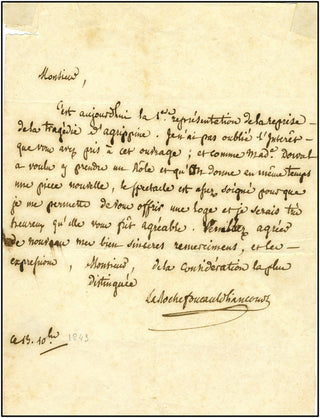 Monsieur,
C'est aujourd'hui la 1ere représentation de la reprise
de la tragédie d'agrippine. Je n'ai pas oublié l'Interêt
que vous avez pris à cet ouvrage; et comme Made. Dorval
a voulu y prendre un Rôle et qu'on donne en même temps
une pièce nouvelle, le spectacle est assez soigné pour que
je me permette de vous offrir une loge et je serais très
heureux qu'elle vous fût agréable. Veuillez agréer
de nouveau mes bien sincères remerciments, et les
expressions, Monsieur, de la considération la plus
distinguée
Larochefoucauld Liancourt
ce 13. 10bre 1843